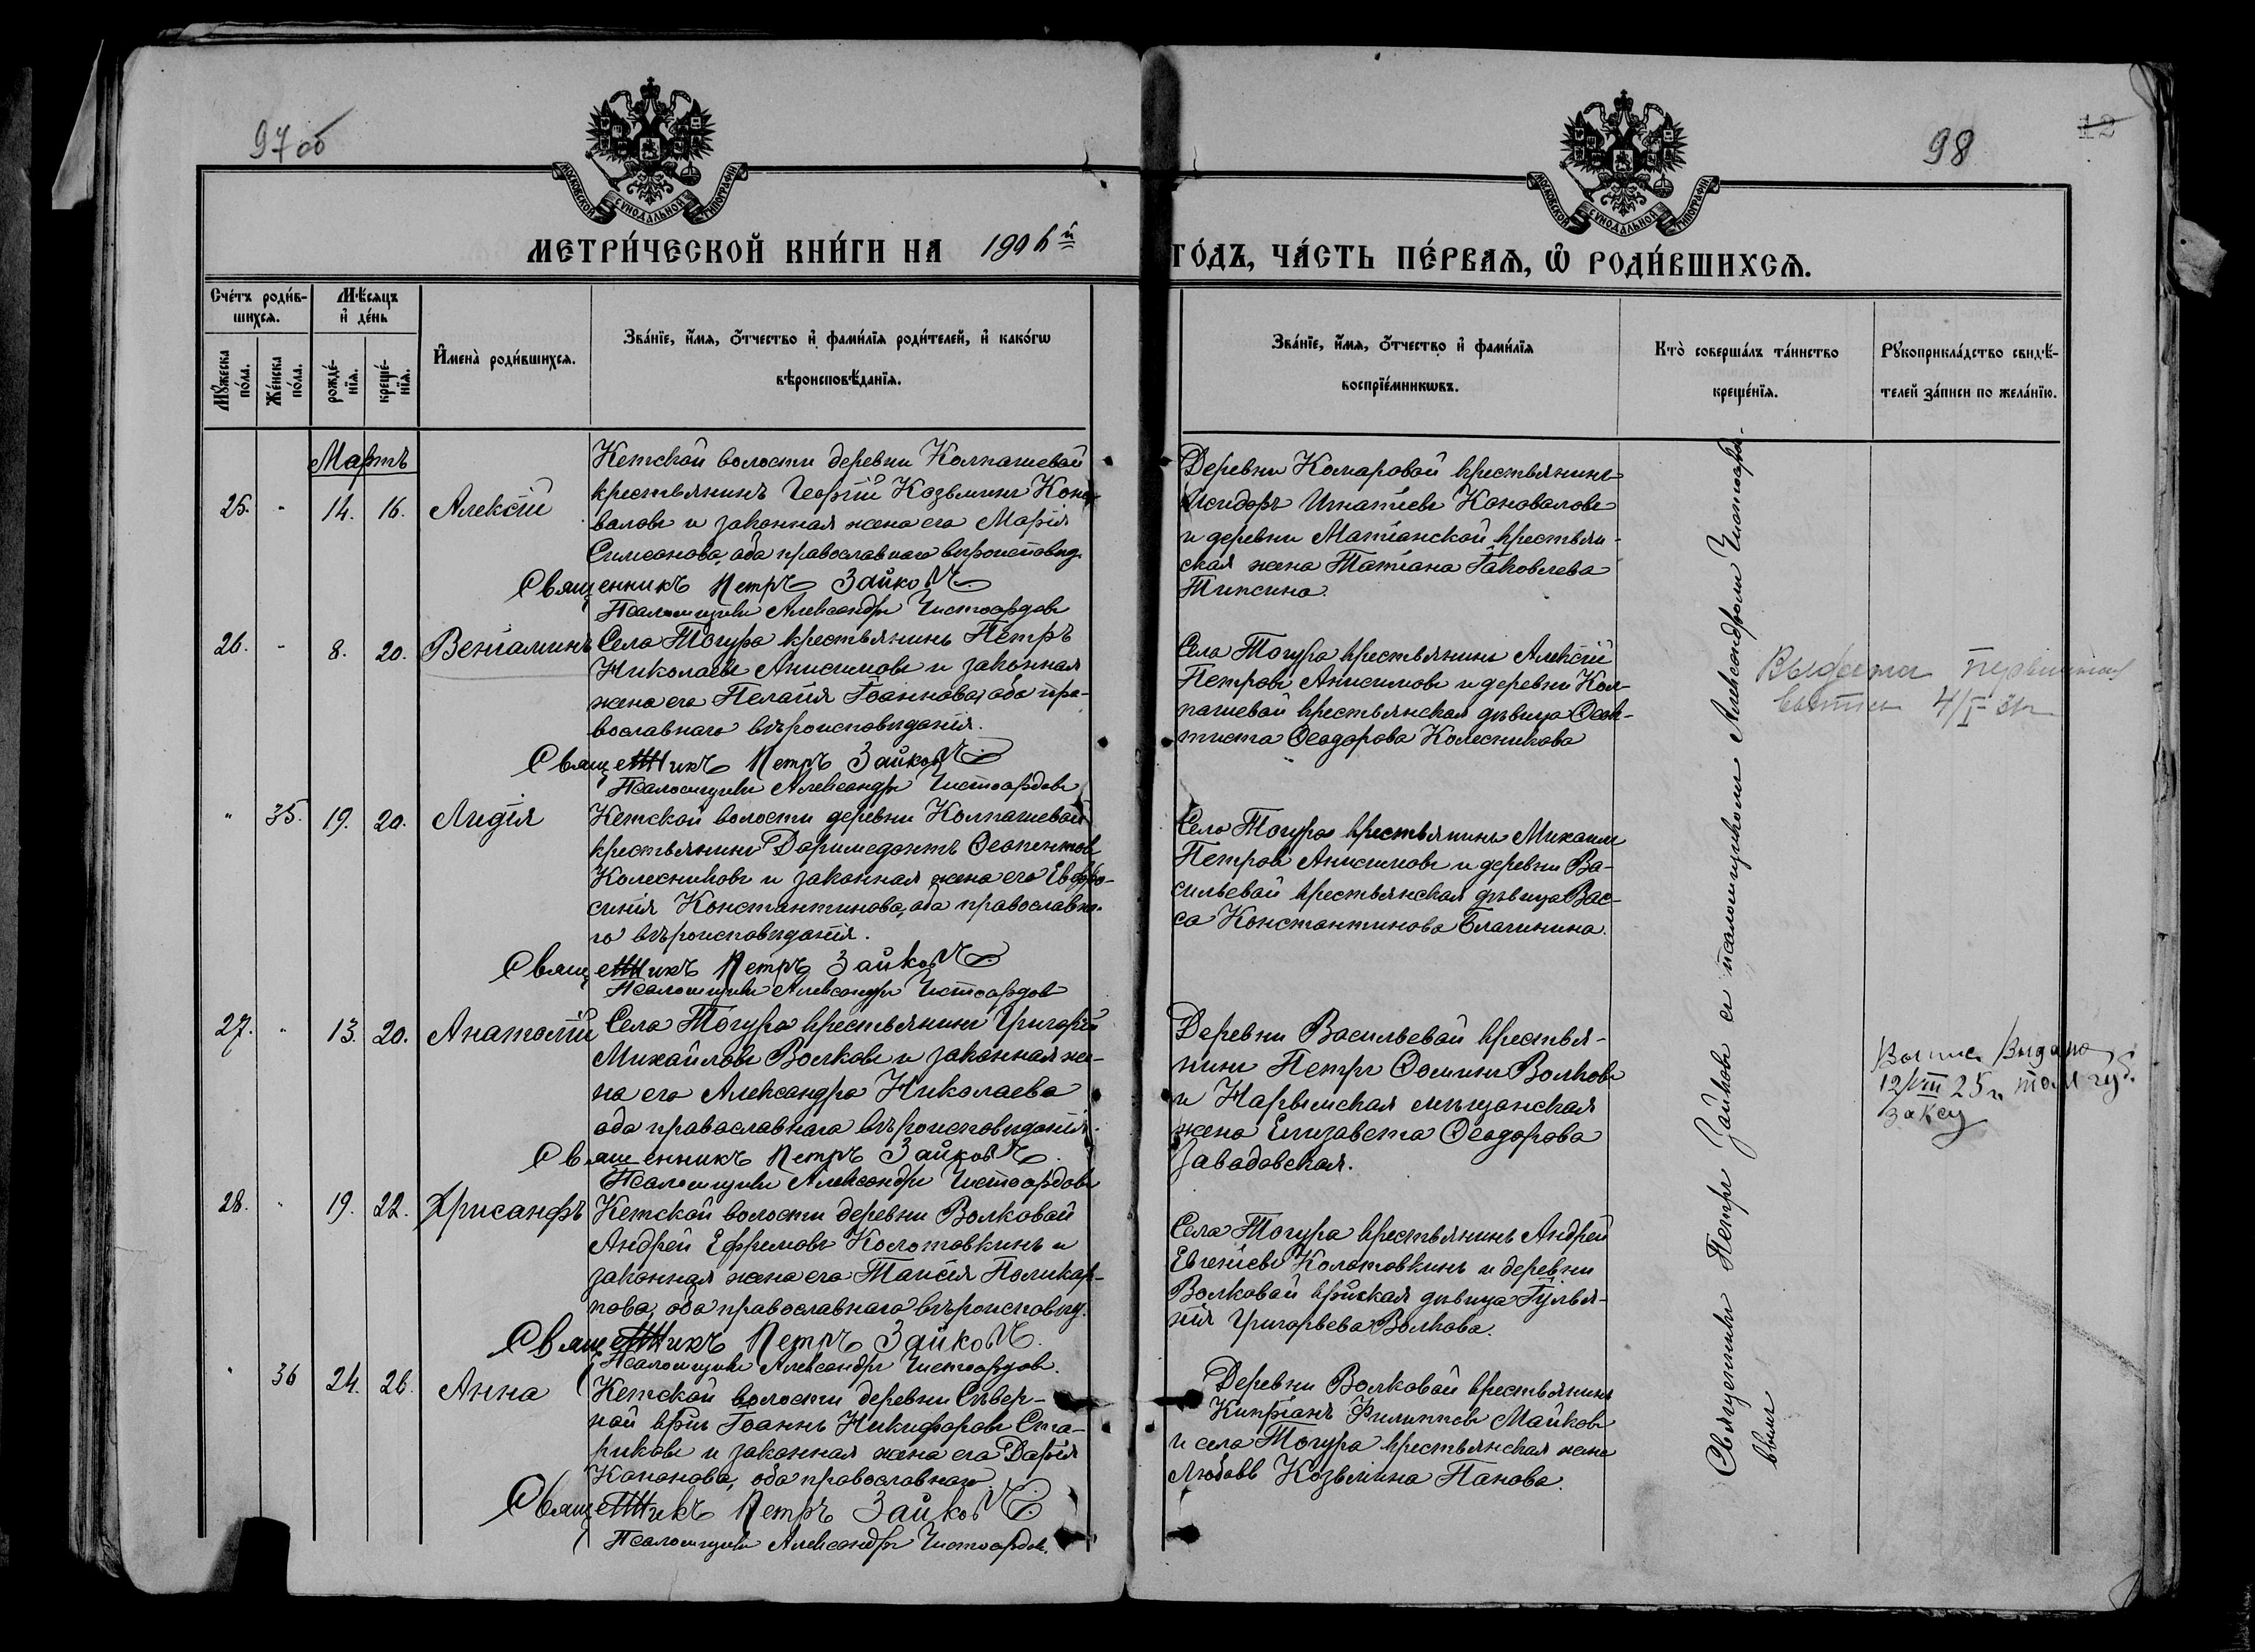 97 об
98
12
МОСКОВСКОЙ СѴНОДАЛЬНОЙ ТИПОГРАФІИ
МОСКОВСКОЙ СѴНОДАЛЬНОЙ ТИПОГРАФІИ
МЕТРИ́ЧЕСКОЙ КНИ́ГИ НА 1906й
ГО́ДЪ, ЧА́СТЬ ПЕ́РВАѦ, Ѡ҆ РОДИ́ВШИХСѦ.
Сче́тъ роди́в-
шихсѧ.
Мѣ́сѧцъ
и҆ де́нь
Мꙋ́жеска
по́ла.
Же́нска
по́ла.
рожде́-
нїѧ.
креще́-
нїѧ.
И҆мена̀ роди́вшихсѧ.
Зва́нїе, и҆́мѧ, ѻ҆́тчество и҆ фами́лїѧ роди́телей, и҆ како́гѡ
вѣроисповѣ́данїѧ.
Зва́нїе, и҆́мѧ, ѻ҆́тчество и҆ фами́лїѧ
воспрїе́мникѡвъ.
Кто̀ соверша́лъ та́инство
креще́нїѧ.
Рꙋкоприкла́дство свидѣ́-
телей за́писи по жела́нїю.
Мартъ
25. " 14. 16. Алексѣй
Кетской волости деревни Колпашевой
крестьянинъ Георгій Козьминъ Коно-
валовъ и законная жена его Марія
Симеонова, оба православнаго вѣроисповѣд.
Священникъ Петръ Зайковъ
Псаломщикъ Александръ Чистосердовъ
Деревни Комаровой крестьянинъ
Исидоръ Игнатіевъ Коноваловъ
и деревни Матіанской крестьян-
ская жена Татіана Іаковлева
Типсина.
26. " 8. 20. Веніаминъ
Села Тогура крестьянинъ Петръ
Николаевъ Анисимовъ и законная
жена его Пелагія Іоаннова, оба пра-
вославнаго вѣроисповѣданія.
Священникъ Петръ Зайковъ
Псаломщикъ Александръ Чистосердовъ
Села Тогура крестьянинъ Алексій
Петровъ Анисимовъ и деревни Кол-
пашевой крестьянская дѣвица Ѳеок-
тиста Ѳеодорова Колесникова
" 35. 19. 20. Лидія
Кетской волости деревни Колпашевой
крестьянинъ Доримедонтъ Ѳеопентов
Колесниковъ и законная жена его Евфро-
синія Константинова, оба православна-
го вѣроисповѣданія.
Священникъ Петръ Зайковъ
Псаломщикъ Александръ Чистосердов
Села Тогура крестьянинъ Михаилъ
Петровъ Анисимовъ и деревни Ва-
сильевой крестьянская дѣвица Вас-
са Константинова Благинина.
27. " 13. 20. Анатолій
Села Тогура крестьянинъ Григорій
Михайловъ Волковъ и законная же-
на его Александра Николаева
оба православнаго вѣроисповѣданія.
Священникъ Петръ Зайковъ
Псаломщикъ Александръ Чистосердовъ
Деревни Васильевой крестья-
нинъ Петръ Ѳоминъ Волковъ
и Нарымская мѣщанская
жена Елизавета Ѳеодорова
Завадовская.
28. " 19. 22. Хрисанфъ
Кетской волости деревни Волковой
Андрей Ефремовъ Колотовкинъ и
законная жена его Таисія Поликар-
пова, оба православнаго вѣроисповѣд.
Священникъ Петръ Зайковъ.
Псаломщикъ Александръ Чистосердов.
Села Тогура крестьянинъ Андрей
Евгеніевъ Колотовкинъ и деревни
Волковой кр̃ская дѣвица Іулья-
нія Григорьева Волкова.
" 36 24. 26. Анна
Кетской волости деревни Сѣвер-
ной кр̃нъ Іоаннъ Никифоровъ Ста-
риковъ и законная жена его Дарія
Кононова, оба православнаг
Священникъ Петръ Зайковъ
Псаломщикъ Александръ Чистосердов.
Деревни Волковой крестьянинъ
Кипріанъ Филипповъ Майковъ
и села Тогура крестьянская жена
Любовь Козьмина Панова.
Священникъ Петръ Зайковъ съ псаломщикомъ Александромъ Чистосердо-
вымъ
4/I
Выдана
12/VIII 25 г.